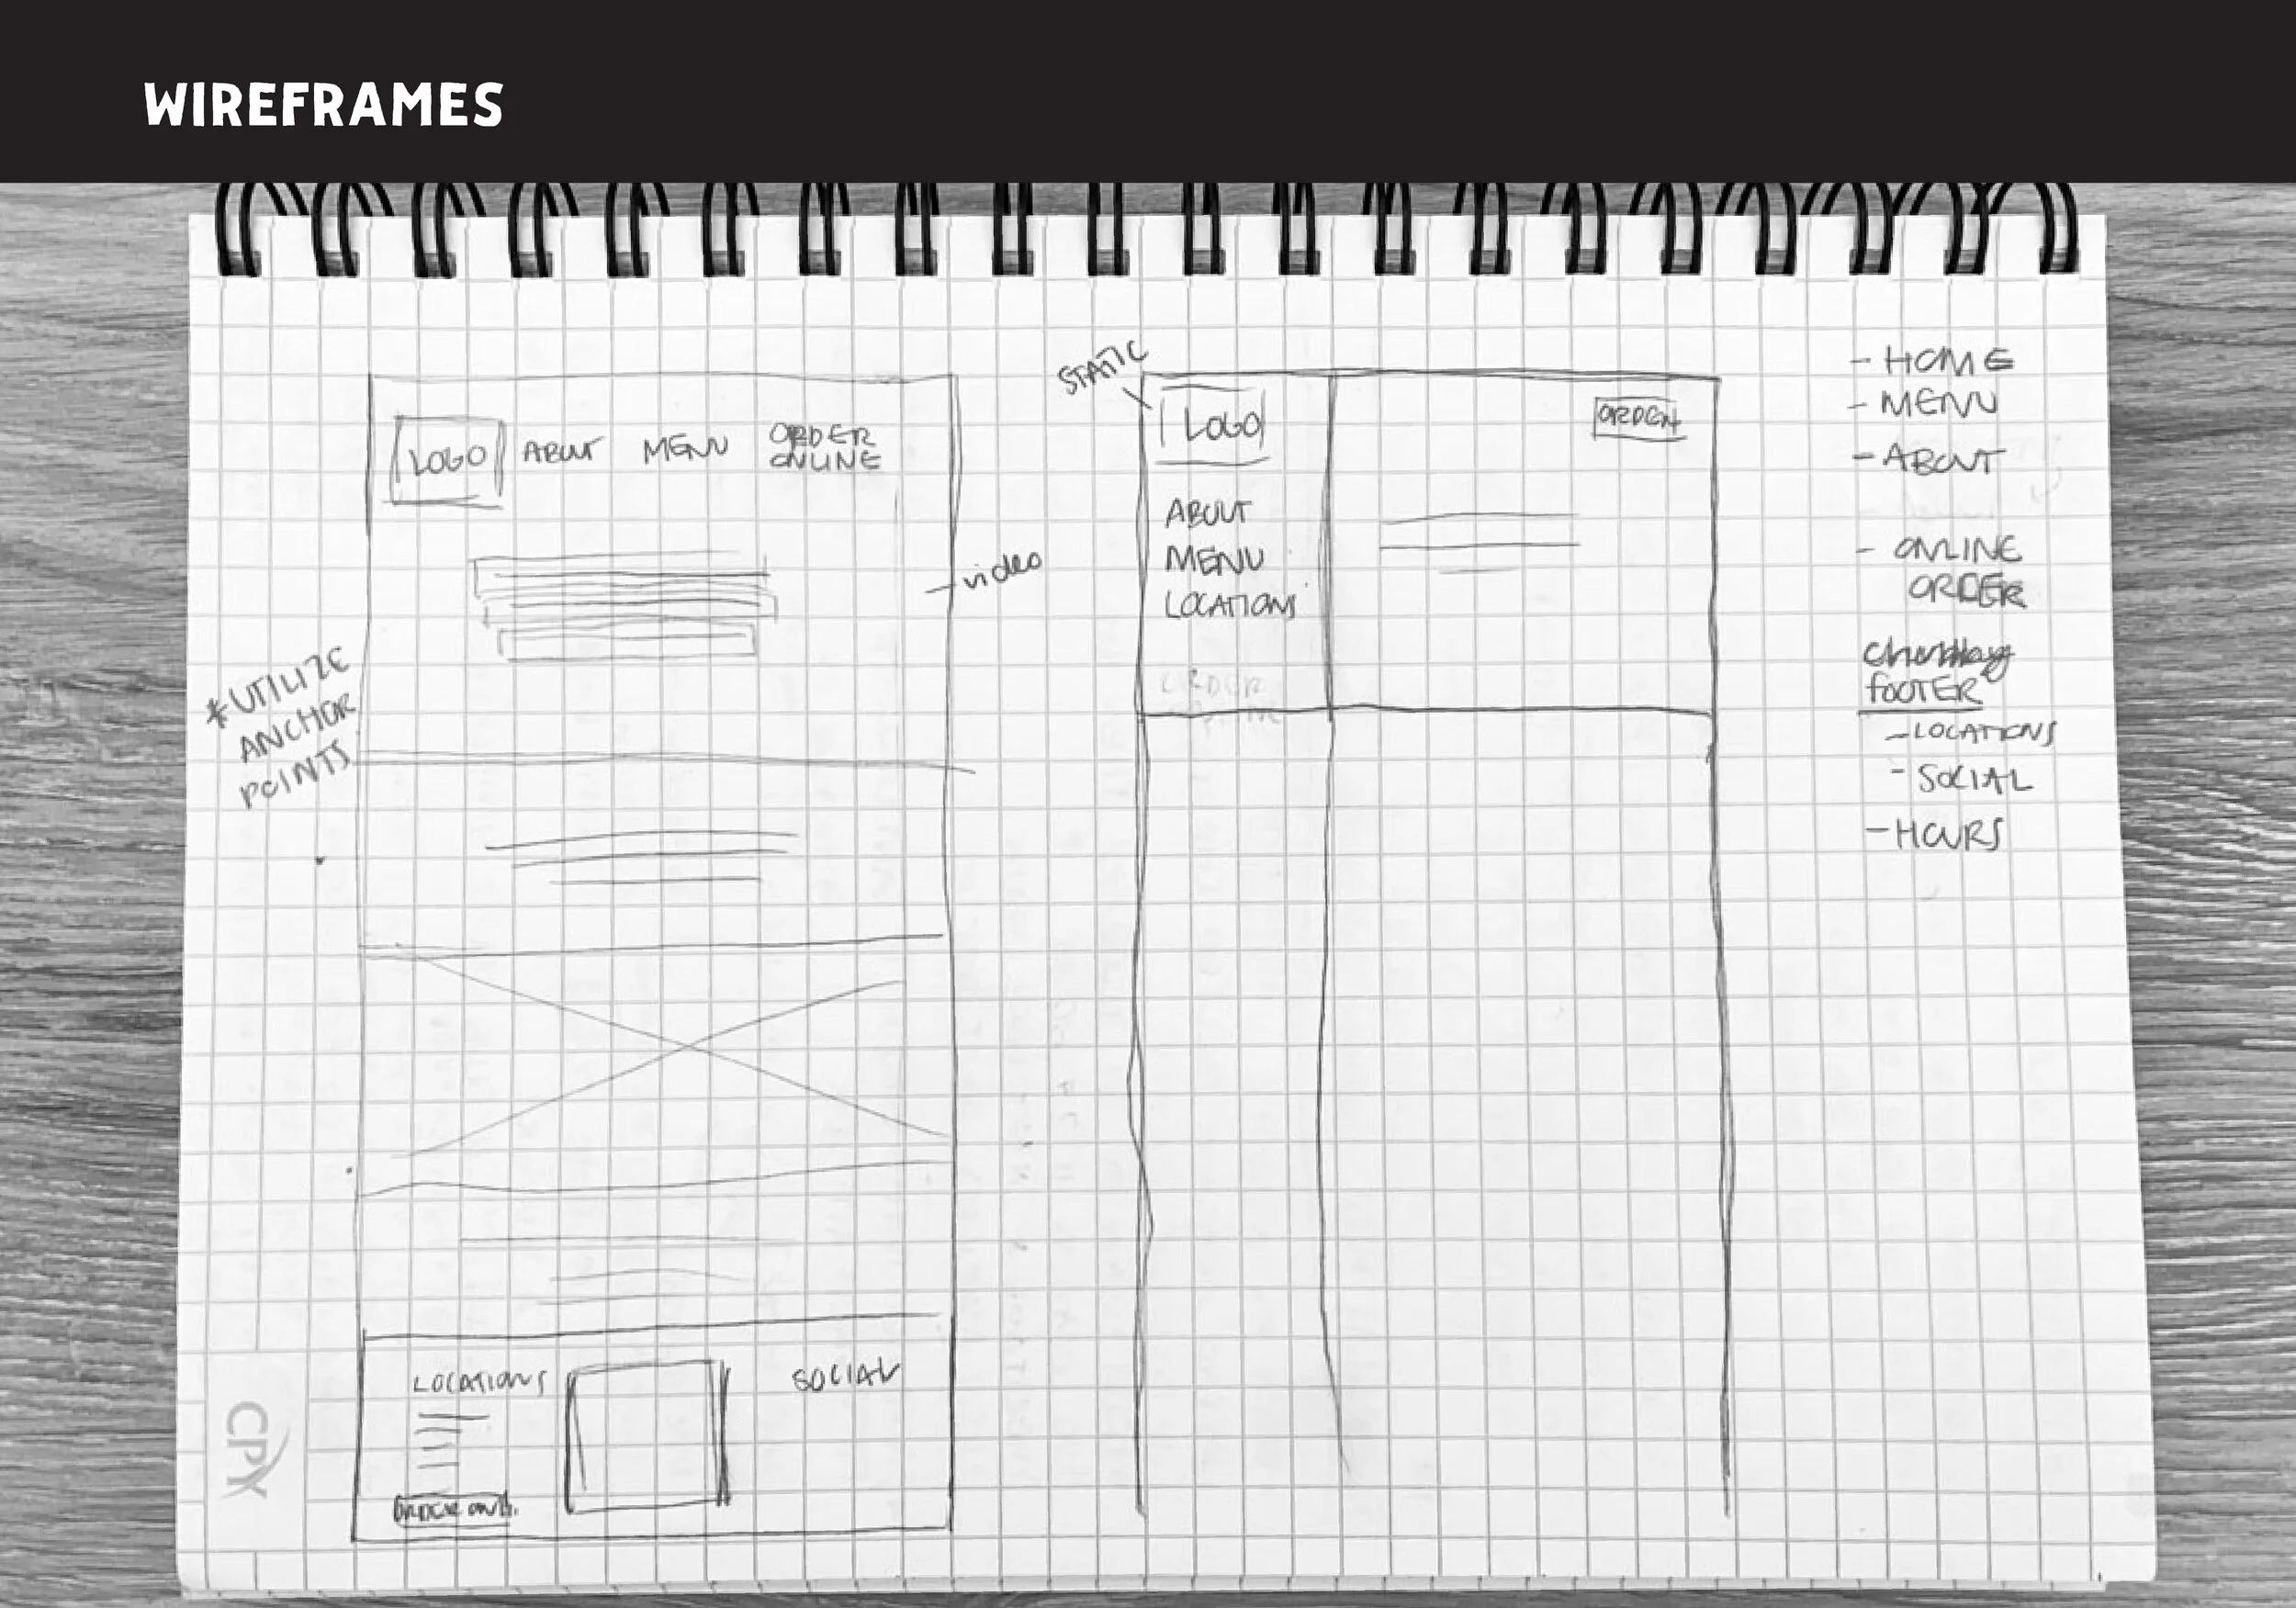 WIREFRAMES
LOGO ABOUT MENU ORDER
ONLINE
video
*UTILIZE
ANCHOR
POINTS
LOCATIONS
SOCIAL
STATIC
LOGO
ORDER
ABOUT
MENU
LOCATIONS
ORDER
- HOME
- MENU
- ABOUT
- ONLINE
ORDER
FOOTER
- LOCATIONS
- SOCIAL
- HOURS
CPY